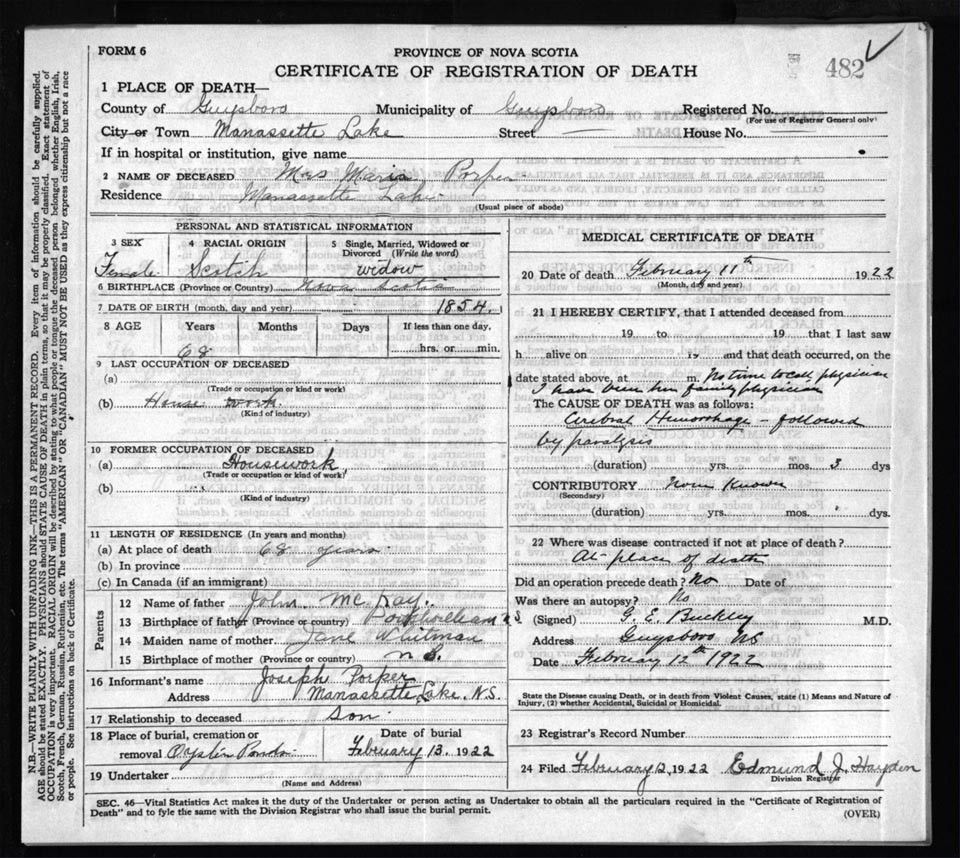 FORM 6
PROVINCE OF NOVA SCOTIA
482
CERTIFICATE OF REGISTRATION OF DEATH
1 PLACE OF DEATH—
County of Guysboro Municipality of Guysboro Registered No.
(For use of Registrar General only)
City or Town Manassette Lake Street — House No.
If in hospital or institution, give name
2 NAME OF DECEASED Mrs Maria Porper
Residence Manassette Lake
(Usual place of abode)
PERSONAL AND STATISTICAL INFORMATION
3 SEX 4 RACIAL ORIGIN 5 Single, Married, Widowed or Divorced (Write the word)
Female Scotch widow
6 BIRTHPLACE (Province or Country) Nova Scotia
7 DATE OF BIRTH (month, day and year) 1854
8 AGE Years Months Days If less than one day,
68 hrs. or min.
9 LAST OCCUPATION OF DECEASED
(a)
(Trade or occupation or kind or work)
(b) House work
(Kind of industry)
10 FORMER OCCUPATION OF DECEASED
(a) Housework
(Trade or occupation or kind of work)
(b)
(Kind of industry)
11 LENGTH OF RESIDENCE (In years and months)
(a) At place of death 68 years
(b) In province
(c) In Canada (if an immigrant)
Parents
12 Name of father John McKay
13 Birthplace of father (Province or country) N.S.
14 Maiden name of mother Jane Whitman
15 Birthplace of mother (Province or country) N.S.
16 Informant's name Joseph Porper
Address Manassette Lake, N.S.
17 Relationship to deceased son
18 Place of burial, cremation or removal Oyster Ponds
Date of burial February 13, 1922
19 Undertaker
(Name and Address)
MEDICAL CERTIFICATE OF DEATH
20 Date of death February 11th 1922
(Month, day and year)
21 I HEREBY CERTIFY, that I attended deceased from
19 to 19 that I last saw
h alive on 19 and that death occurred, on the
date stated above, at m. No time to call physician
I have been her family physician
The CAUSE OF DEATH was as follows:
Cerebral Hemorrhage - followed
by paralysis
(duration) yrs. mos. 3 dys
CONTRIBUTORY None Known
(Secondary)
(duration) yrs. mos. dys.
22 Where was disease contracted if not at place of death?
At place of death
Did an operation precede death? No Date of
Was there an autopsy? No
(Signed) G. E. Buckley M.D.
Address Guysboro NS
Date February 12th 1922
State the Disease causing Death, or in death from Violent Causes, state (1) Means and Nature of
Injury, (2) whether Accidental, Suicidal or Homicidal.
23 Registrar's Record Number
24 Filed February 12, 1922 Edmund J. Hayden
Division Registrar
SEC. 46—Vital Statistics Act makes it the duty of the Undertaker or person acting as Undertaker to obtain all the particulars required in the "Certificate of Registration of
Death" and to fyle the same with the Division Registrar who shall issue the burial permit.
(OVER)
N.B.—WRITE PLAINLY WITH UNFADING INK—THIS IS A PERMANENT RECORD. Every item of information should be carefully supplied.
AGE should be stated EXACTLY. PHYSICIANS should STATE CAUSE OF DEATH in plain terms, so that it may be properly classified. Exact statement of
OCCUPATION is very important. RACIAL ORIGIN will be described by stating to what people or tongue the deceased person belonged whether English, Irish,
Scotch, French, German, Russian, Ruthenian, etc. The terms "AMERICAN" or "CANADIAN" MUST NOT BE USED as they express citizenship but not a race
or people. See instructions on back of Certificate.